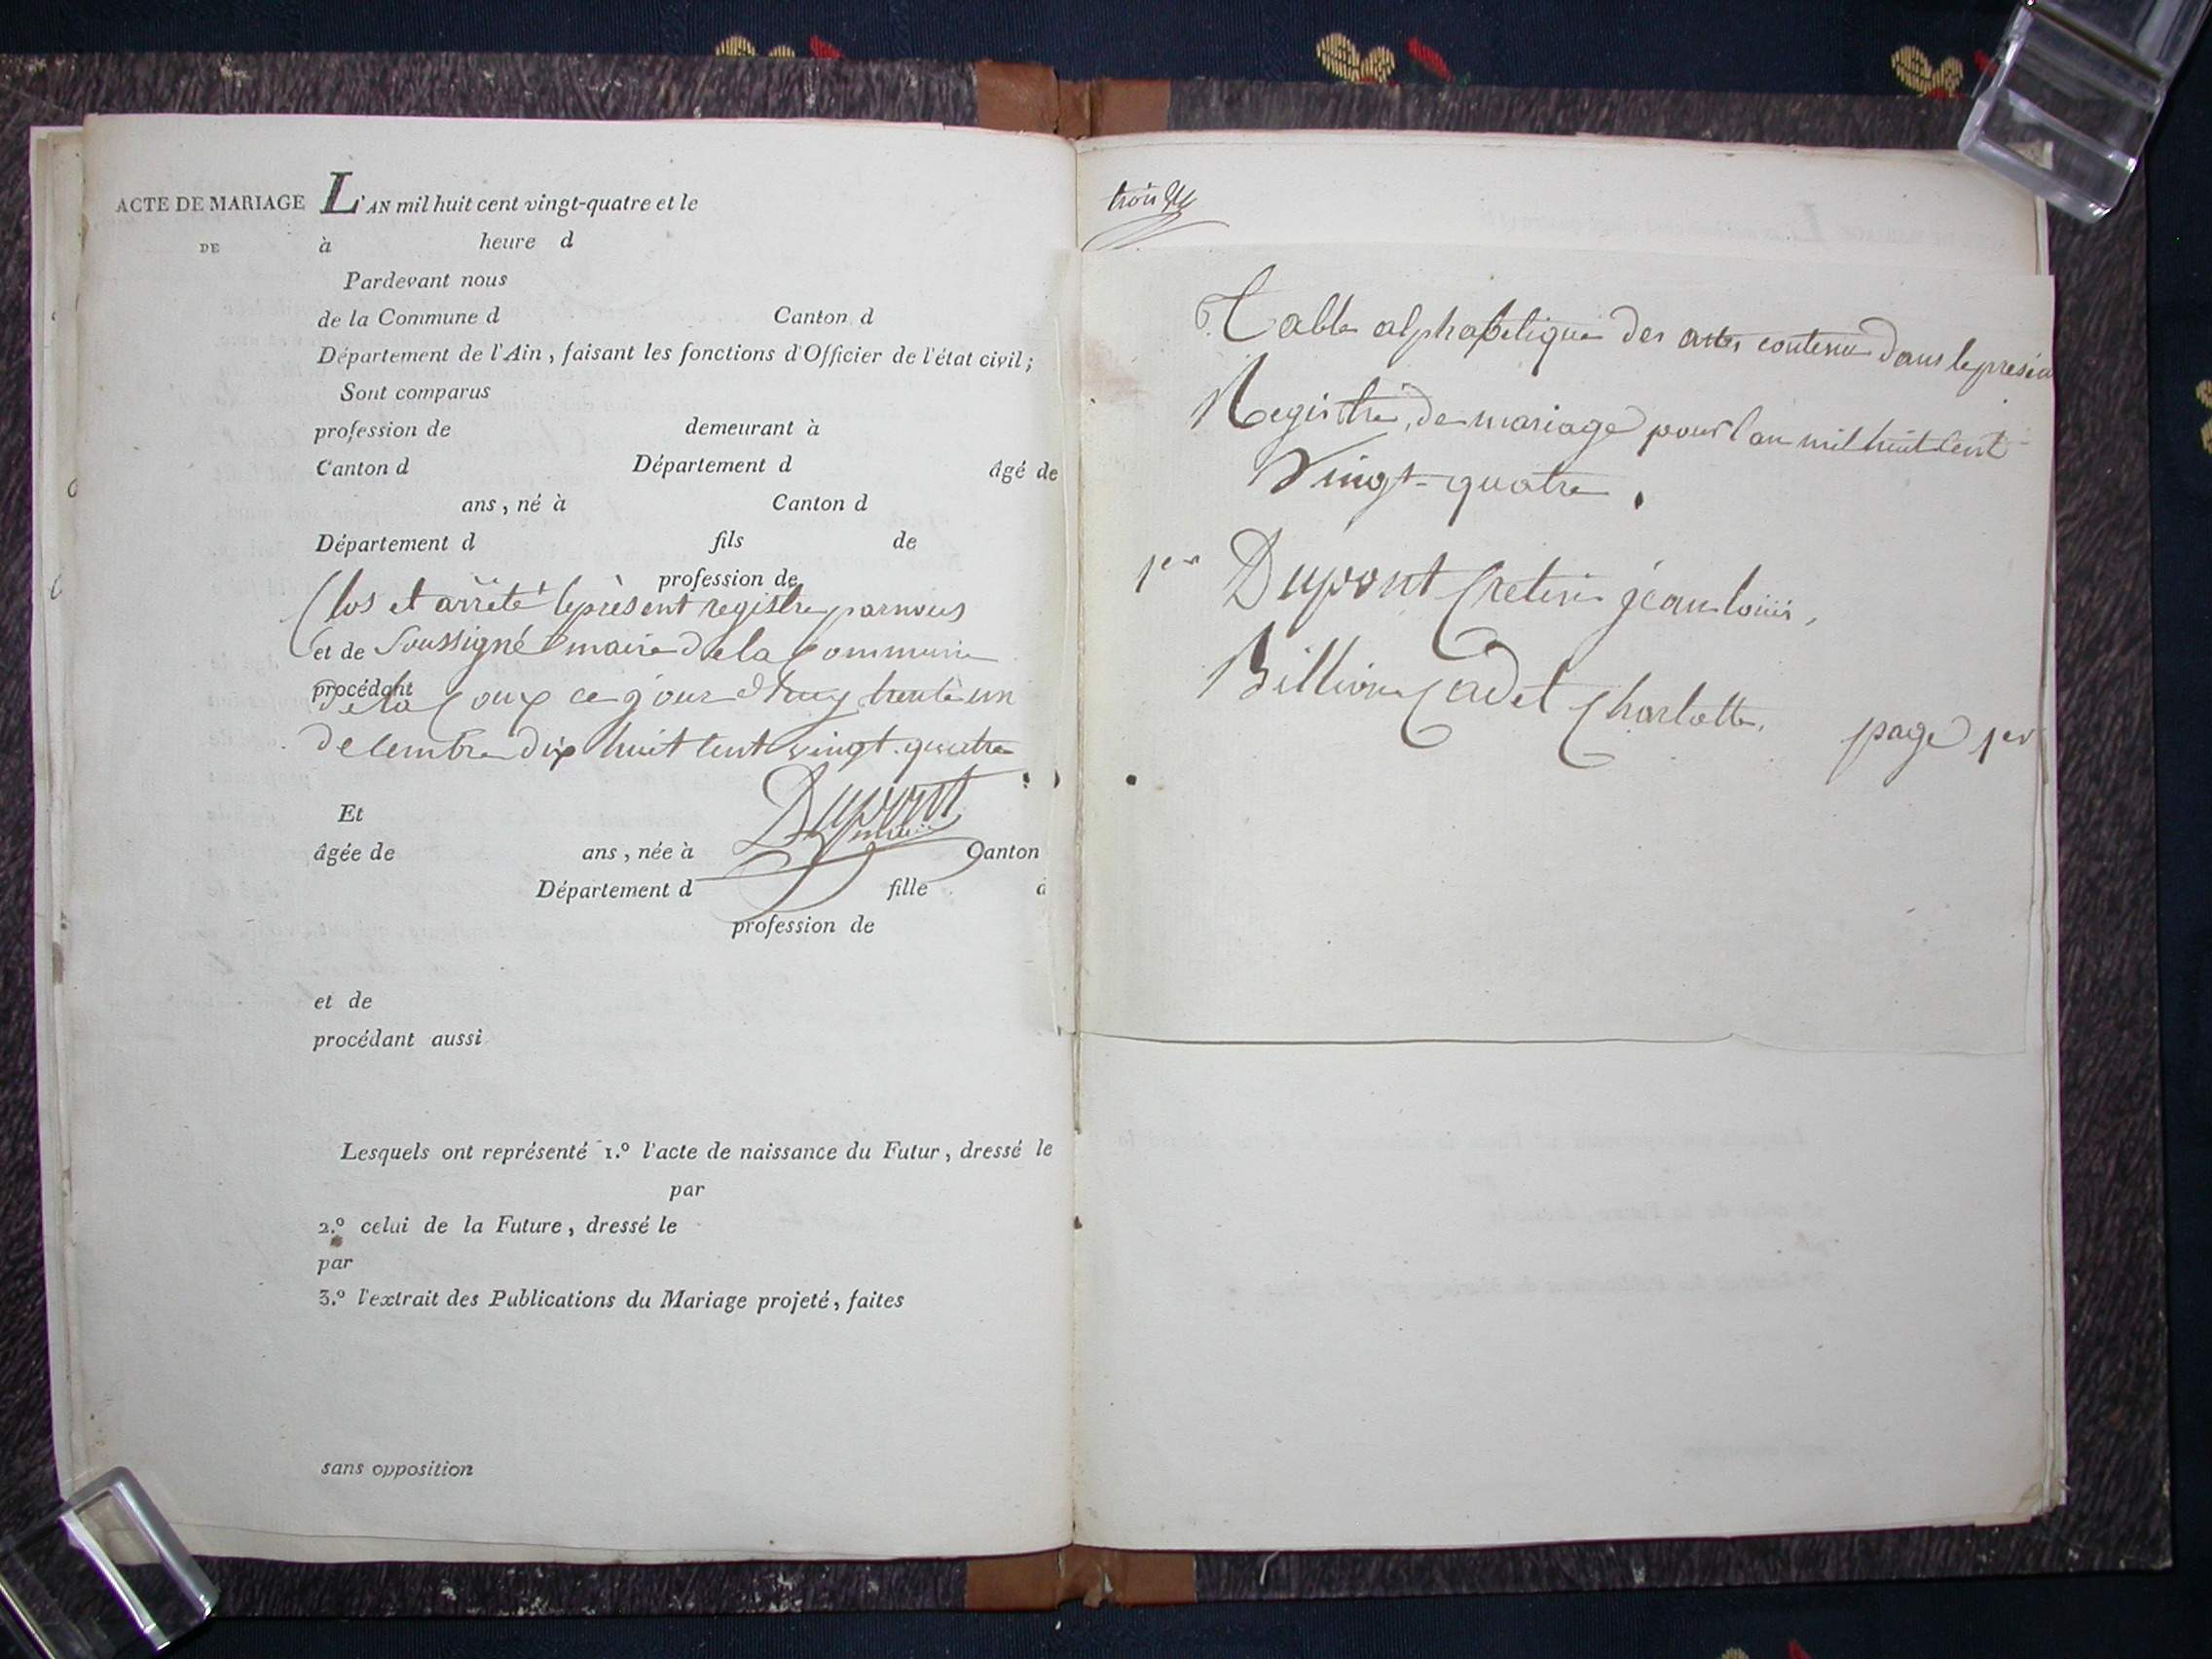 ACTE DE MARIAGE
DE
L'AN mil huit cent vingt-quatre et le
à heure d
Pardevant nous
de la Commune d Canton d
Département de l'Ain, faisant les fonctions d'Officier de l'état civil;
Sont comparus
profession de demeurant à
Canton d Département d âgé de
ans, né à Canton d
Département d fils de
profession de
Clos et arrêté le présent registre par nous
et de Soussigné maire de la Commune
procédant
de la Coux ce jour d'huy trente un
decembre dix huit cent vingt-quatre
Dupont
maire
Et
âgée de ans, née à Canton
Département d fille d
profession de
et de
procédant aussi
Lesquels ont représenté 1.º l'acte de naissance du Futur, dressé le
par
2.º celui de la Future, dressé le
par
3.º l'extrait des Publications du Mariage projeté, faites
sans opposition
trois
Table alphabetique des actes contenu dans le présen
Registre, de mariage pour l'an mil huit cent
Vingt-quatre.
1er Dupont Cretin jean louis,
Billion Cadet Charlotte, page 1er